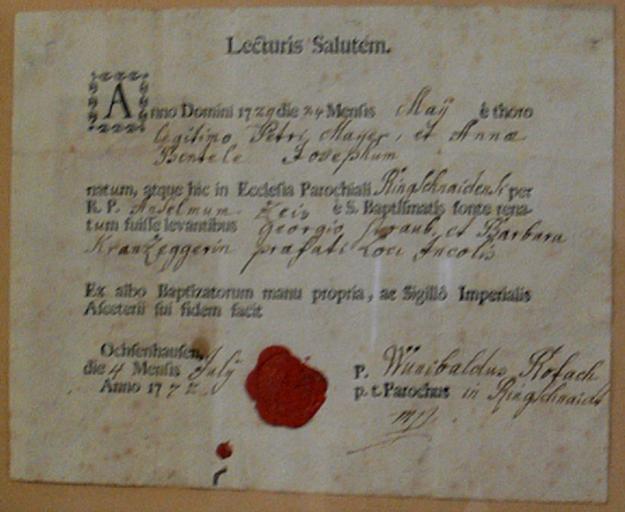 Lecturis Salutem.
Anno Domini 1729 die 24 Mensis Maÿ è thoro
legitimo Petri Mayer, et Annæ
Bentele Josephum
natum, atque hic in Ecclesia Parochiali Ringschnaidensi per
R. P. Anselmum Zeis è S. Baptismatis fonte rena-
tum fuisse levantibus Georgio Straub, et Barbara
Kranzeggerin præfati Loci Incolis
Ex albo Baptizatorum manu propria, ac Sigillô Imperialis
Asceterii sui fidem facit
Ochsenhausen,
die 4 Mensis July
Anno 1772
P. Wunibaldus
p. t. Parochus in Ringschnaidt
mp